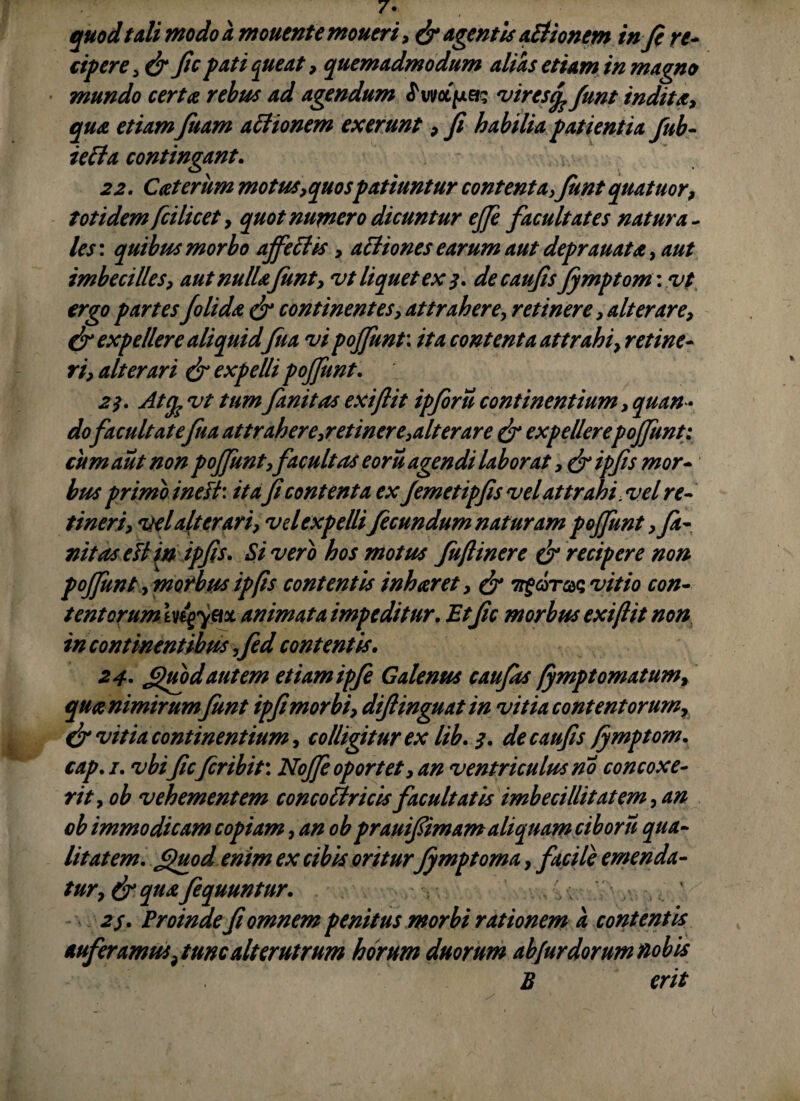 7.
quod tali modo à mouente moueri, & agentis actionem in ſe re-
cipere, & ſic pati queat, quemadmodum aliâs etiam in magno
mundo certæ rebus ad agendum δυνάμεις viresq́; ſunt inditæ,
quæ etiam ſuam actionem exerunt, ſi habilia patientia ſub-
iecta contingant.
22. Cæterùm motus, quos patiuntur contenta, ſunt quatuor,
totidem ſcilicet, quot numero dicuntur eſſe facultates natura-
les: quibus morbo affectis, actiones earum aut deprauatæ, aut
imbecilles, aut nullæ ſunt, vt liquet ex 3. de cauſis ſymptom: vt
ergo partes ſolidæ & continentes, attrahere, retinere, alterare,
& expellere aliquid ſua vi poſſunt: ita contenta attrahi, retine-
ri, alterari & expelli poſſunt.
23. Atq; vt tum ſanitas exiſtit ipſorū continentium, quan-
do facultate ſua attrahere, retinere, alterare & expellere poſſunt:
cùm aūt non poſſunt, facultas eorū agendi laborat, & ipſis mor-
bus primò ineſt: ita ſi contenta ex ſemetipſis vel attrahi, vel re-
tineri, vel alterari, vel expelli ſecundum naturam poſſunt, ſa-
nitas eſt in ipſis. Si verò hos motus ſuſtinere & recipere non
poſſunt, morbus ipſis contentis inhæret, & πρώτως vitio con-
tentorum ἐνέργεια animata impeditur. Et ſic morbus exiſtit non
in continentibus, ſed contentis.
24. Quòd autem etiam ipſe Galenus cauſas ſymptomatum,
quæ nimirum ſunt ipſi morbi, diſtinguat in vitia contentorum,
& vitia continentium, colligitur ex lib. 3. de cauſis ſymptom.
cap. 1. vbi ſic ſcribit: Noſſe oportet, an ventriculus nō concoxe-
rit, ob vehementem concoctricis facultatis imbecillitatem, an
ob immodicam copiam, an ob prauiſſimam aliquam ciborū qua-
litatem. Quod enim ex cibis oritur ſymptoma, facilè emenda-
tur, & quæ ſequuntur.
25. Proinde ſi omnem penitus morbi rationem à contentis
auferamus, tunc alterutrum horum duorum abſurdorum nobis
B erit